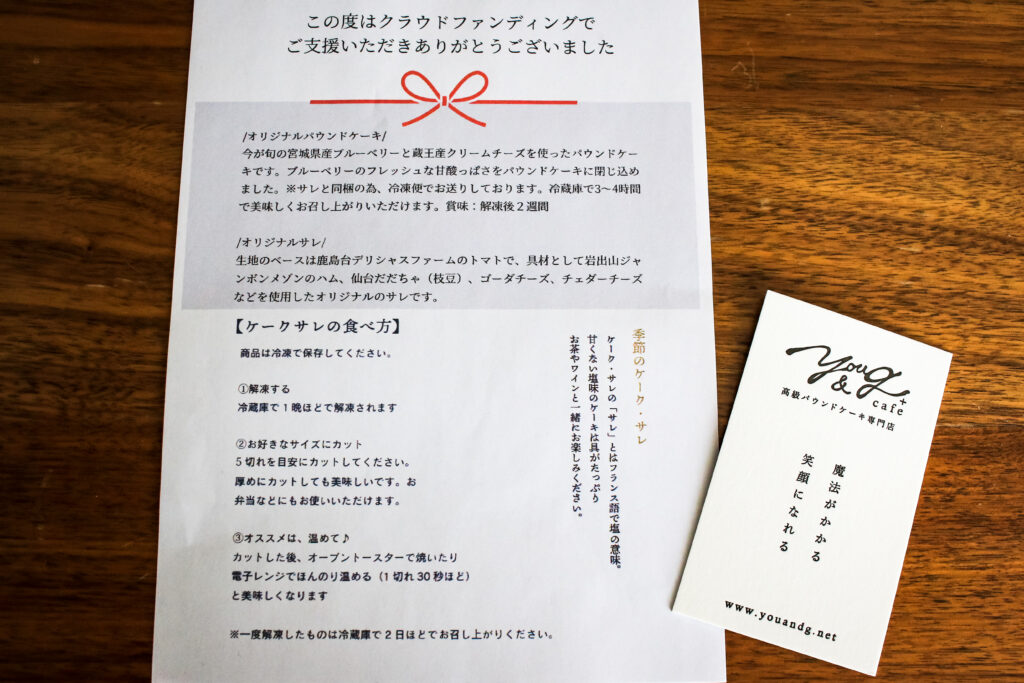 この度はクラウドファンディングで
ご支援いただきありがとうございました
/オリジナルパウンドケーキ/
今が旬の宮城県産ブルーベリーと蔵王産クリームチーズを使ったパウンドケー
キです。ブルーベリーのフレッシュな甘酸っぱさをパウンドケーキに閉じ込め
ました。※サレと同梱の為、冷凍便でお送りしております。冷蔵庫で3〜4時間
で美味しくお召し上がりいただけます。賞味：解凍後２週間
/オリジナルサレ/
生地のベースは鹿島台デリシャスファームのトマトで、具材として岩出山ジャ
ンボンメゾンのハム、仙台だだちゃ（枝豆）、ゴーダチーズ、チェダーチーズ
などを使用したオリジナルのサレです。
【ケークサレの食べ方】
商品は冷凍で保存してください。
①解凍する
冷蔵庫で１晩ほどで解凍されます
②お好きなサイズにカット
５切れを目安にカットしてください。
厚めにカットしても美味しいです。お
弁当などにもお使いいただけます。
③オススメは、温めて♪
カットした後、オーブントースターで焼いたり
電子レンジでほんのり温める（1切れ30秒ほど）
と美味しくなります
※一度解凍したものは冷蔵庫で２日ほどでお召し上がりください。
季節のケーク・サレ
ケーク・サレの「サレ」とはフランス語で塩の意味。
甘くない塩味のケーキは具がたっぷり
お茶やワインと一緒にお楽しみください。
you
& g
cafe+
高級パウンドケーキ専門店
魔法がかかる
笑顔になれる
www.youandg.net